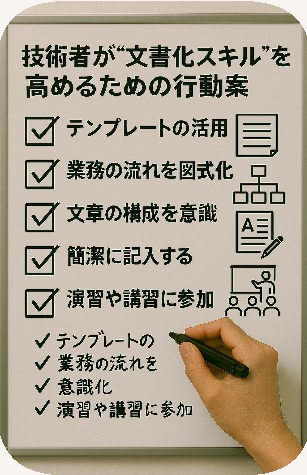 技術者が“文書化スキル”を
高めるための行動案
テンプレートの活用
業務の流れを図式化
文章の構成を意識
A
簡潔に記入する
演習や講習に参加
テンプレートの
業務の流れを
意識化
演習や講習に参加